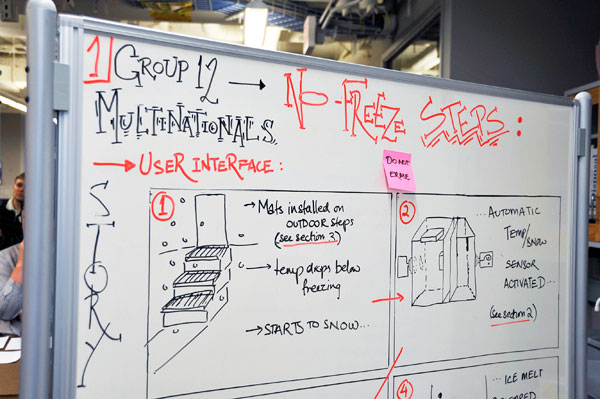 1 GROUP 12 → NO-FREEZE STEPS:
MULTINATIONALS.
→ USER INTERFACE:
DO NOT
ERASE
STORY
1
→ Mats installed on
OUTDOOR steps
(see section 2)
→ temp drops below
freezing
→ STARTS TO SNOW...
2
... AUTOMATIC
TEMP/
SNOW
SENSOR
ACTIVATED...
(see section 2)
4
... ICE MELT